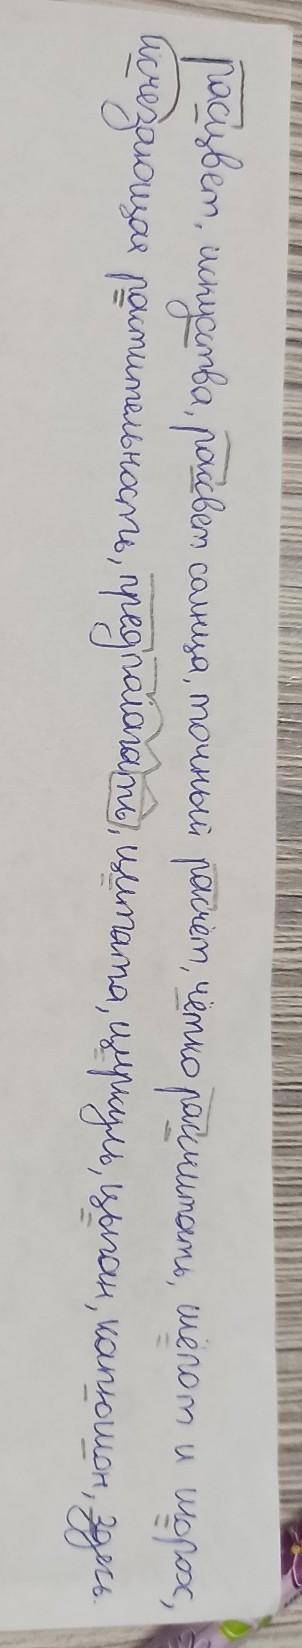 Расцвет, искусства, рассвет солнца, точный расчёт, чётко рассчитать, шёпот и шорох,
исчезающая растительность, предполагать, цитата, циркуль, цыган, капюшон, здесь.